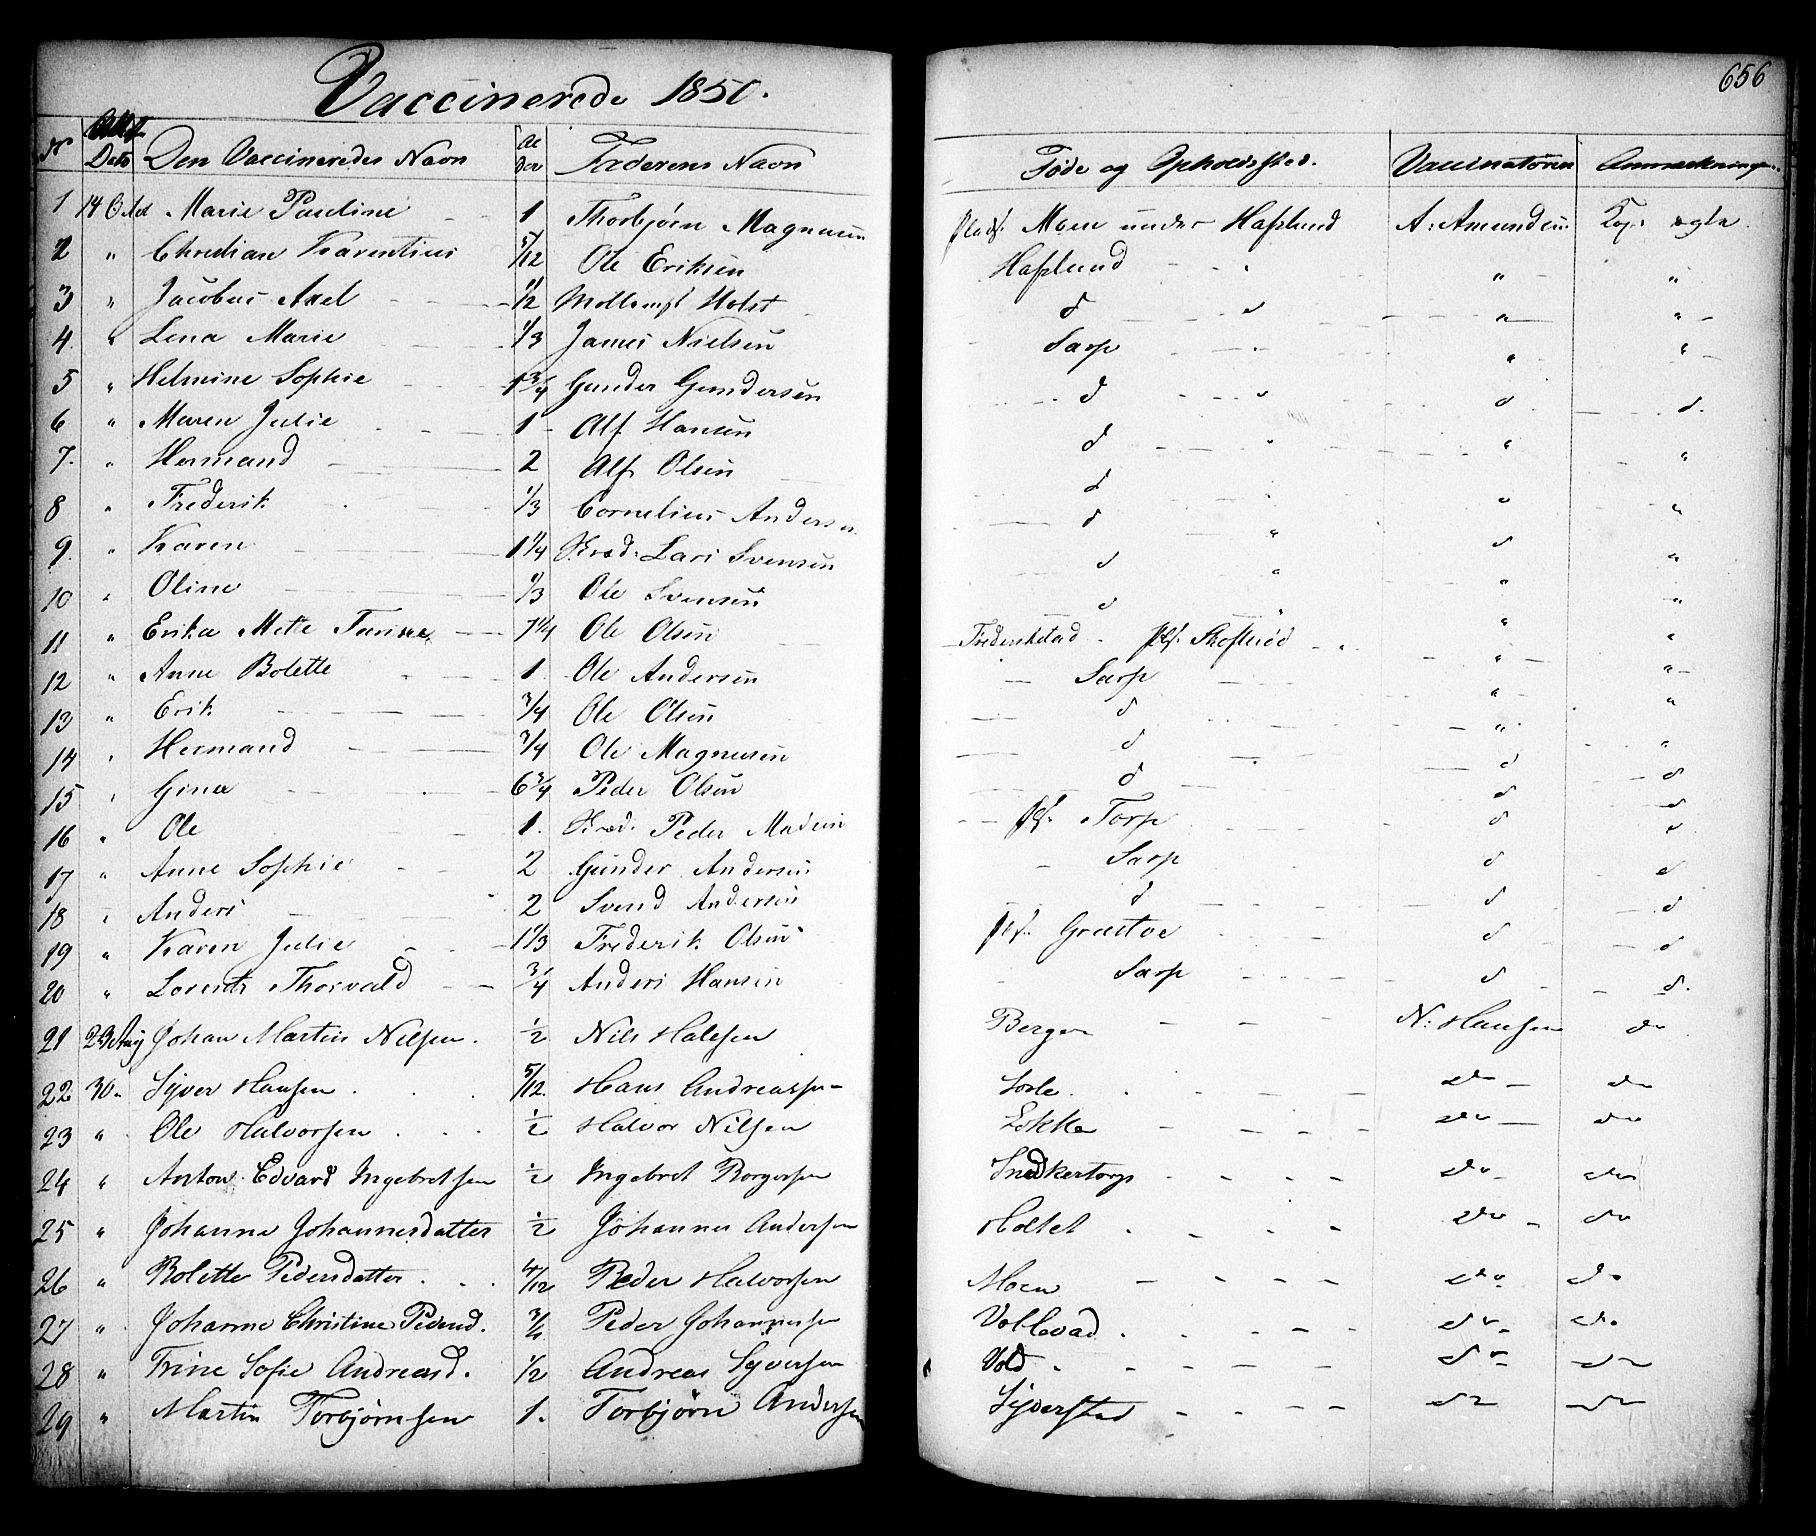 Vaccinerede 1850.
656
No Dato Den Vaccineredes Navn Alder Faderens Navn Føde og Opholdssted. Vaccinatøren Anmærkninger
1 14 Octob Marie Pauline 1 Thorbjørn Magnusen Plads. Moen under Hafslund A: Amundsen Kop: ægte
2 " Christian Laurentius 5/12 Ole Eriksen Hafslund " "
3 " Jacobus Axel 1/2 Holst d " "
4. " Lena Marie 1/3 James Nielsen Sarp " "
5 " Helmine Sophie 1 3/4 Gunder Gundersen d d d.
6 " Maren Julie 1 Alf Hansen d " "
7. " Hermand 2 Alf Olsen d " "
8 " Frederik 1/3 Cornelius Andersen d " "
9. " Karen 1 1/4 Lars Svensen d " "
10 " Oline 1/3 Ole Svensen d " "
11 " Erika Mette 7 1/4 Ole Olsen Frederikstad
12 " Anne Bolette 1. Ole Andersen Sarp " "
13 " Erik 3/4 Ole Olsen d " "
14 " Hermand 3/4 Ole Magnusen d " "
15 " Gina 6 3/4 Peder Olsen d d d
16 " Ole 1. Peder Madsen pls. Torp d d
17 " Anne Sophie 2 Gunder Andersen Sarp d d
18 " Anders 2 Svend Andersen d d d
19 " Karen Julie 1 1/3 Frederik Olsen pls. d d
20 " Lorents Thorvald 3/4 Anders Hansen Sarp d d.
21 29 Aug Johan Martin Nilsen. 1/2 Nils Halvsen Bergen N: Hansen do
22 30 " Syver Hansen 5/12. Hans Andreassen do do
23 " Ole Halvorsen 1/2 Halvor Nilsen Løkke do do
24 " Anton Edvard Ingebretsen 1/2 Ingebret Borgersen Snedkertorp do do
25 " Johanne Johannesdatter 1/2 Johannes Andersen Holtet do do
26 " Bolette Pedersdatter. 4/12 Peder Halvorsen Moen do do
27 " Johanne Christine Pedersd. 3/4 Peder Johannessen do do
28 " Trine Sofie Andreasd. 1/2 Andreas Syversen Vold do do
29 " Martin Torbjørnsen 1. Torbjørn Andersen Syverstad do do